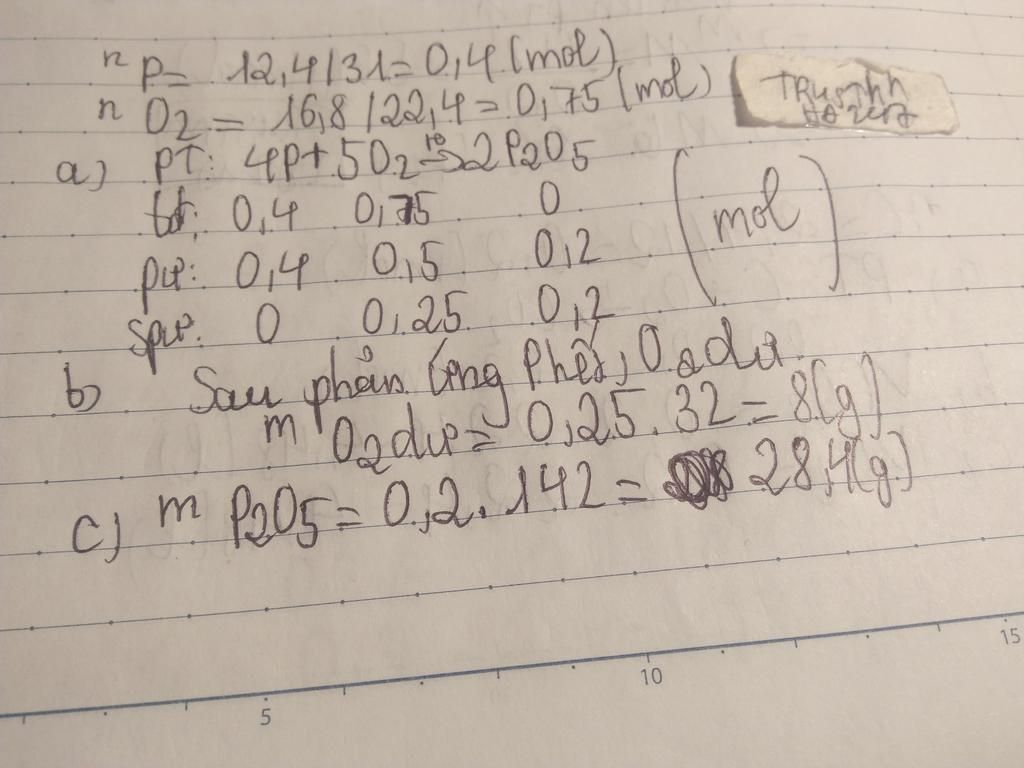 n P = 12,4/31 = 0,4 (mol)
n O2 = 16,8/22,4 = 0,75 (mol)
a) PT: 4P + 5O2 t° → 2P2O5
bđ: 0,4 0,75 0
pư: 0,4 0,5 0,2
(mol)
spư: 0 0,25 0,2
b) Sau phản ứng P hết, O2 dư
m O2 dư = 0,25 . 32 = 8(g)
c) m P2O5 = 0,2 . 142 = 28,4(g)
5
10
15